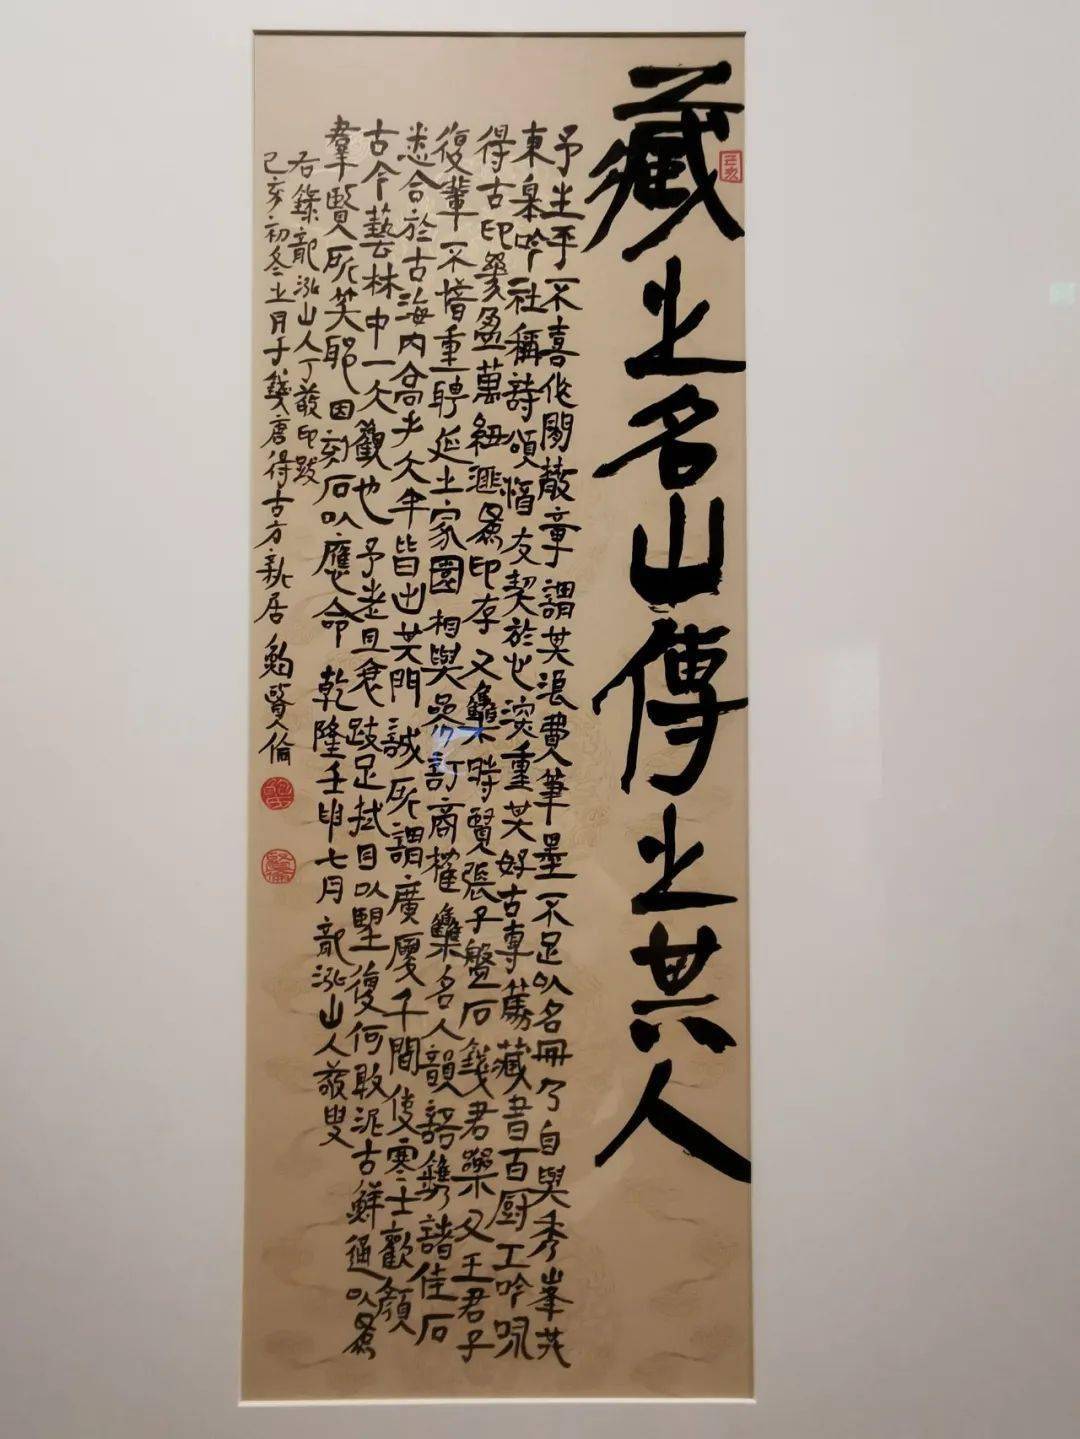 藏之名山傳之其人
己亥
予生平不喜作閒散章謂其浪費筆墨不足以名冊乃自與秀峯
東皋吟社稱詩頌惰友契於心深重其好古專篤藏書百廚工吟咏
得古印幾盈萬紐滙爲印存又集時賢張子盤石錢君樂又王君子
復輩不惜重聘延之家園相與參訂商榷集名人韻語鐫諸佳石
悉合於古海內高手大半皆出其門誠所謂廣廈千間使寒士歡顏
古今藝林中一大觀也予老且衰跂足拭目以望復何敢泥古鮮通以爲
羣賢所笑耶因刻石以應命 乾隆壬申七月 龍泓山人敬叟
右錄龍泓山人丁敬印跋
己亥初冬之月于錢唐得古方新居 鮑賢倫